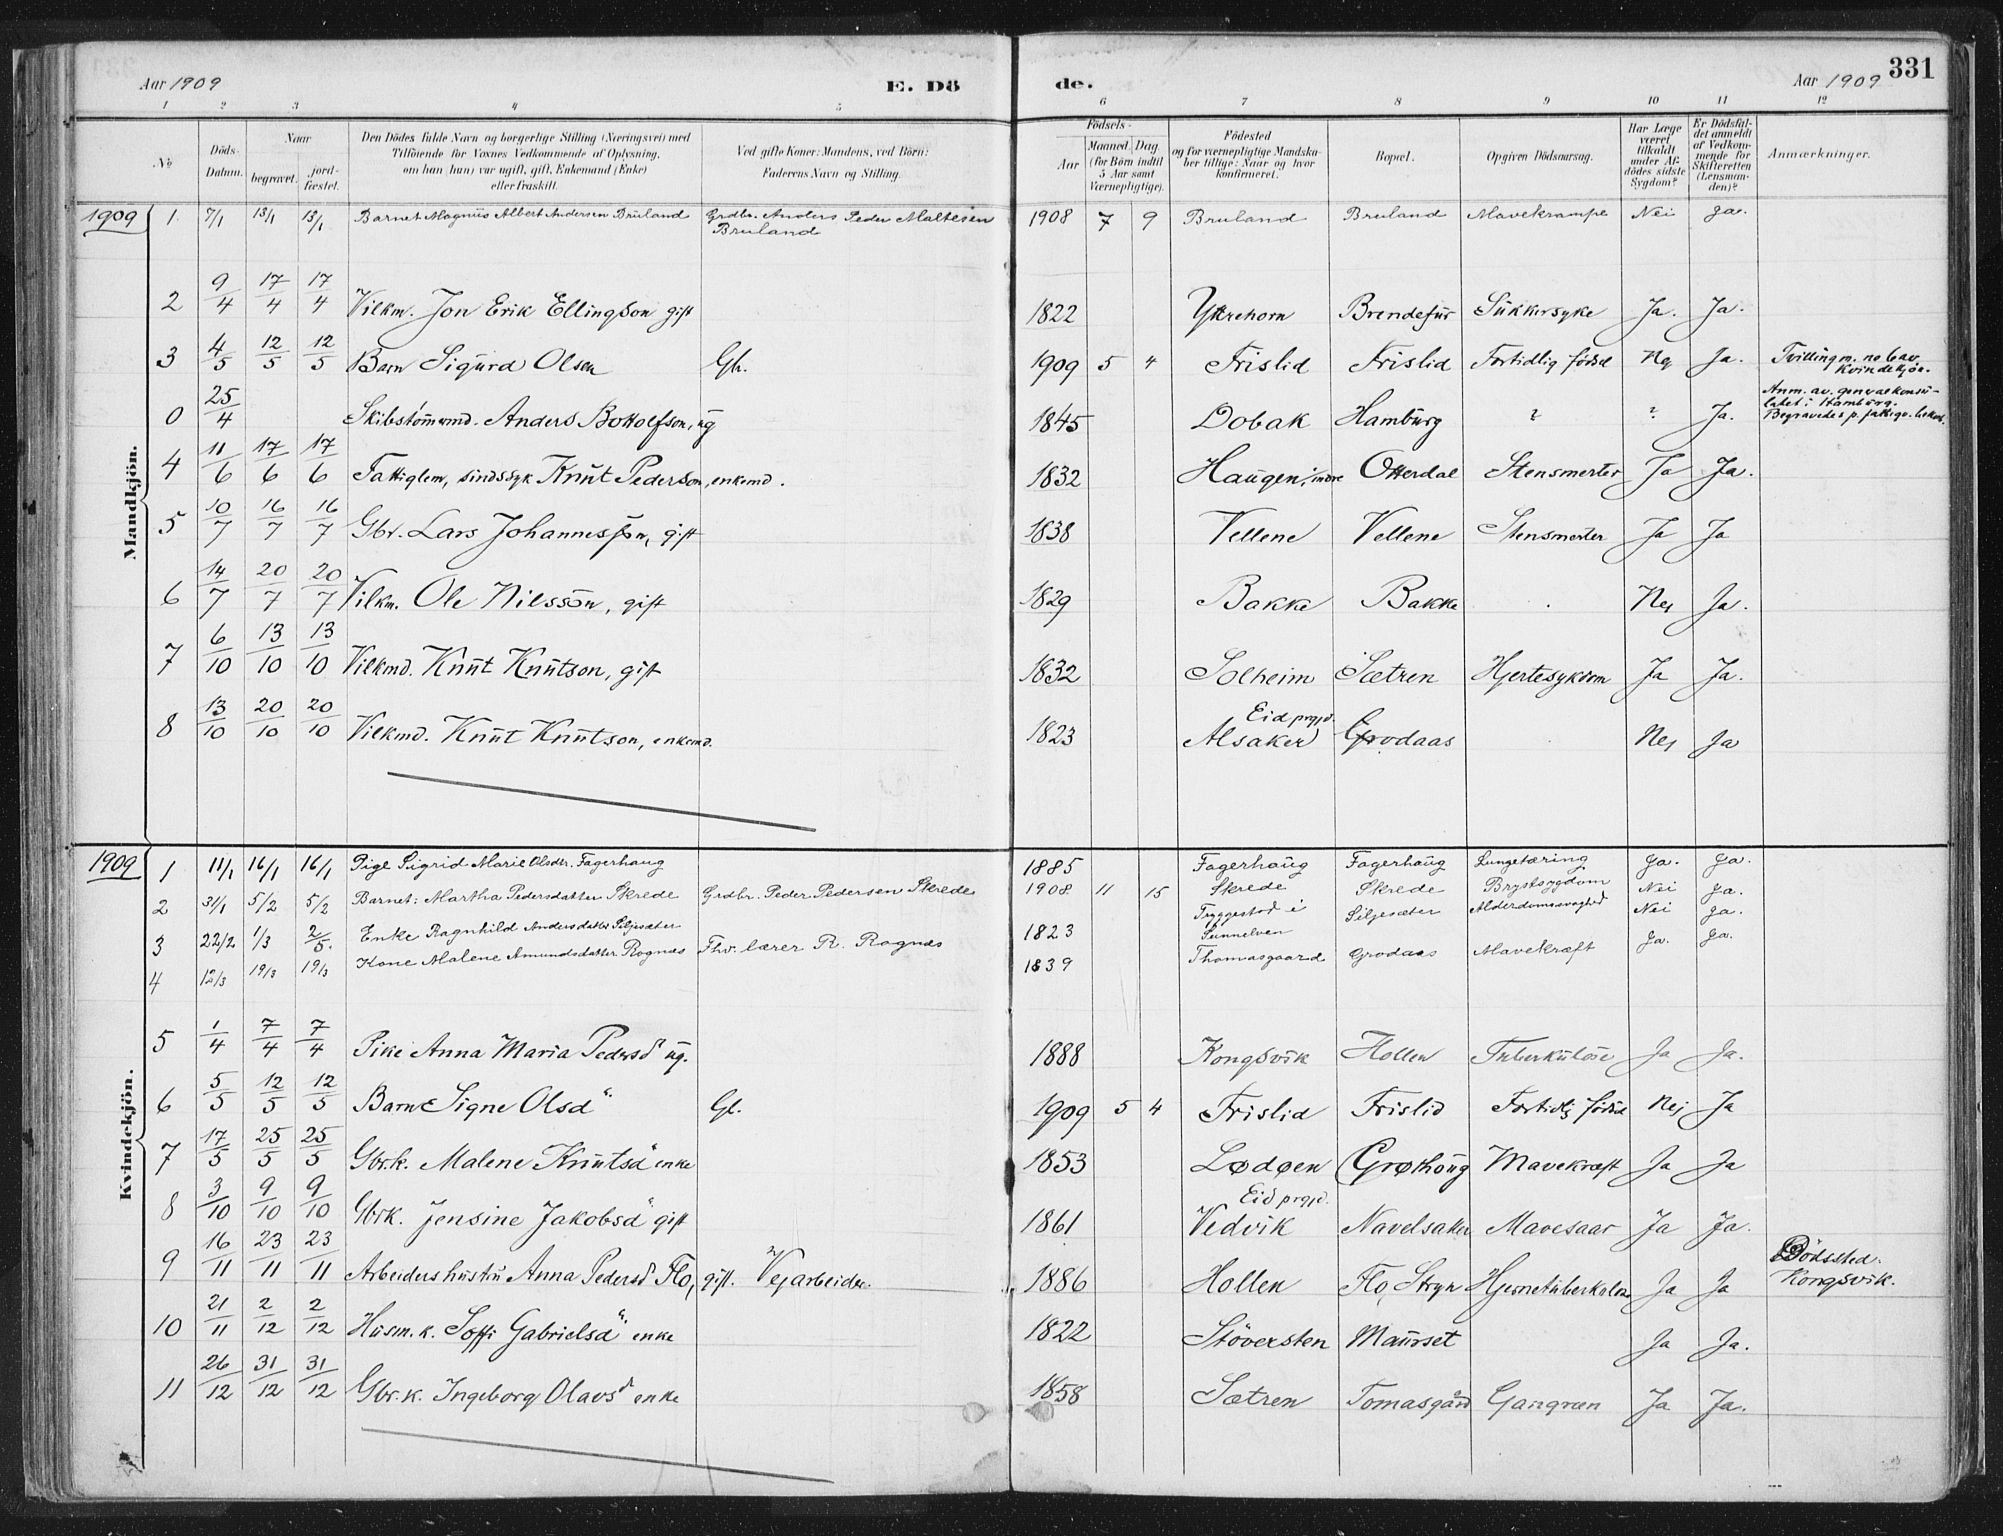 Aar 1909 E. Dö de. Aar 1909 331
1 2 3 4 5 6 7 8 9 10 11 12
No Döds-Datum. Naar begravet. jordfæstet. Den Dödes fulde Navn og borgerlige Stilling (Næringsvei) med Tilföiende for Voxnes Vedkommende af Oplysning, om han (hun) var ugift, gift, Enkemand (Enke) eller fraskilt. Ved gifte Koner: Mandens, ved Börn: Faderens Navn og Stilling. Födsels- Aar Maaned. Dag. (for Börn indtil 5 Aar samt Værnepligtige). Födested og for værnepligtige Mandskaber tillige: Naar og hvor konfirmeret. Bopæl. Opgiven Dödsaarsag. Har Læge været tilkaldt under Afdödes sidste Sygdom? Er Dödsfaldet anmeldt af Vedkommende for Skifteretten (Lensmanden)? Anmærkninger.
Mandkjön.
1909 1. 7/1 13/1 13/1 Barnet Magnus Albert Andersen Bruland Grdbr. Anders Peder Maltesen Bruland 1908 7 9 Bruland Bruland Mavekrampe Nei ja.
2 9/4 17/4 17/4 Vilkm. Jon Erik Ellingson gift 1822 Ytrehorn Brendefur Sukkersyke Ja. Ja.
3 4/5 12/5 12/5 Barn Sigurd Olsen Gh. 1909 5 4 Frislid Frislid Fortidlig födsel Nej Ja. Tvilling m. no 6 av kvindekjön.
0 25/4 Skibstömmmd. Anders Bottolfson, ug 1845 Dobak Hamburg ? ? Ja. Anm. av generalkonsulatet i Hamburg. Begravedes p. fattigv. bekost.
4 11/6 17/6 17/6 Fattiglem, sindssyk Knut Pederson, enkemd. 1832 Haugen, indre Otterdal Stensmerter Ja Ja.
5 10/7 16/7 16/7 Gbr. Lars Johannesson, gift 1838 Vellene Vellene Stensmerter Ja Ja
6 14/7 20/7 20/7 Vilkm. Ole Nilsson, gift 1829 Bakke Bakke . Nej Ja.
7 6/10 13/10 13/10 Vilkmd. Knut Knutson, gift 1832 Solheim Sætren Hjertesykdom Ja Ja.
8 13/10 20/10 20/10 Vilkmd. Knut Knutson, enkemd. 1823 Eid prgjd. Alsaker Grodaas . Nej Ja
Kvindekjön.
1909 1 11/1 16/1 16/1 Pige Sigrid Marie Olsdtr. Fagerhaug 1885 Fagerhaug Fagerhaug Lungetæring Ja. Ja.
2 31/1 5/2 5/2 Barnet: Martha Pedersdatter Skrede Grdbr. Peder Pedersen Skrede 1908 11 15 Skrede Skrede Brystsygdom Nei ja.
3 22/2 1/3 2/5. Enke Ragnhild Andersdatter Siljesæter 1823 Tryggestad i Sunnelven Siljesæter Alderdomssvaghed Nei ja.
4 12/3 19/3 19/3 Kone Malene Amundsdatter Rognæs Fhv. lærer R. Rognæs 1839 Thomasgaard Grodaas Mavekræft Ja. Ja.
5 1/4 7/4 7/4 Pike Anna Maria Pedersd ug. 1888 Kongsvik Hollen Tuberkulose Ja Ja.
6 5/5 12/5 12/5 Barn Signe Olsd" Gl. 1909 5 4 Frislid Frislid Fortidlig födsel Nej Ja
7 17/5 25/5 25/5 Gbr.k. Malene Knutsd" enke 1853 Lødøen Grøthoug Mavekræft Ja Ja
8 3/10 9/10 9/10 Gbrk. Jensine Jakobsd" gift 1861 Eid prgjd. Vedvik Navelsaker Mavesaar Ja Ja.
9 16/11 23/11 23/11 Arbeidershustru Anna Pedersd Flo, gift. Vejarbeider. 1886 Hollen Flo, Stryn Hjernetuberkulose Ja Ja Dödssted. Kongsvik.
10 21/11 2/12 2/12 Husm.k. Soffi Gabrielsd" enke 1822 Stöversten Maurset Ja Ja.
11 26/12 31/12 31/12 Gbr.k. Ingeborg Olavsd enke 1858 Sætren Tomasgård Gangræn Ja Ja.